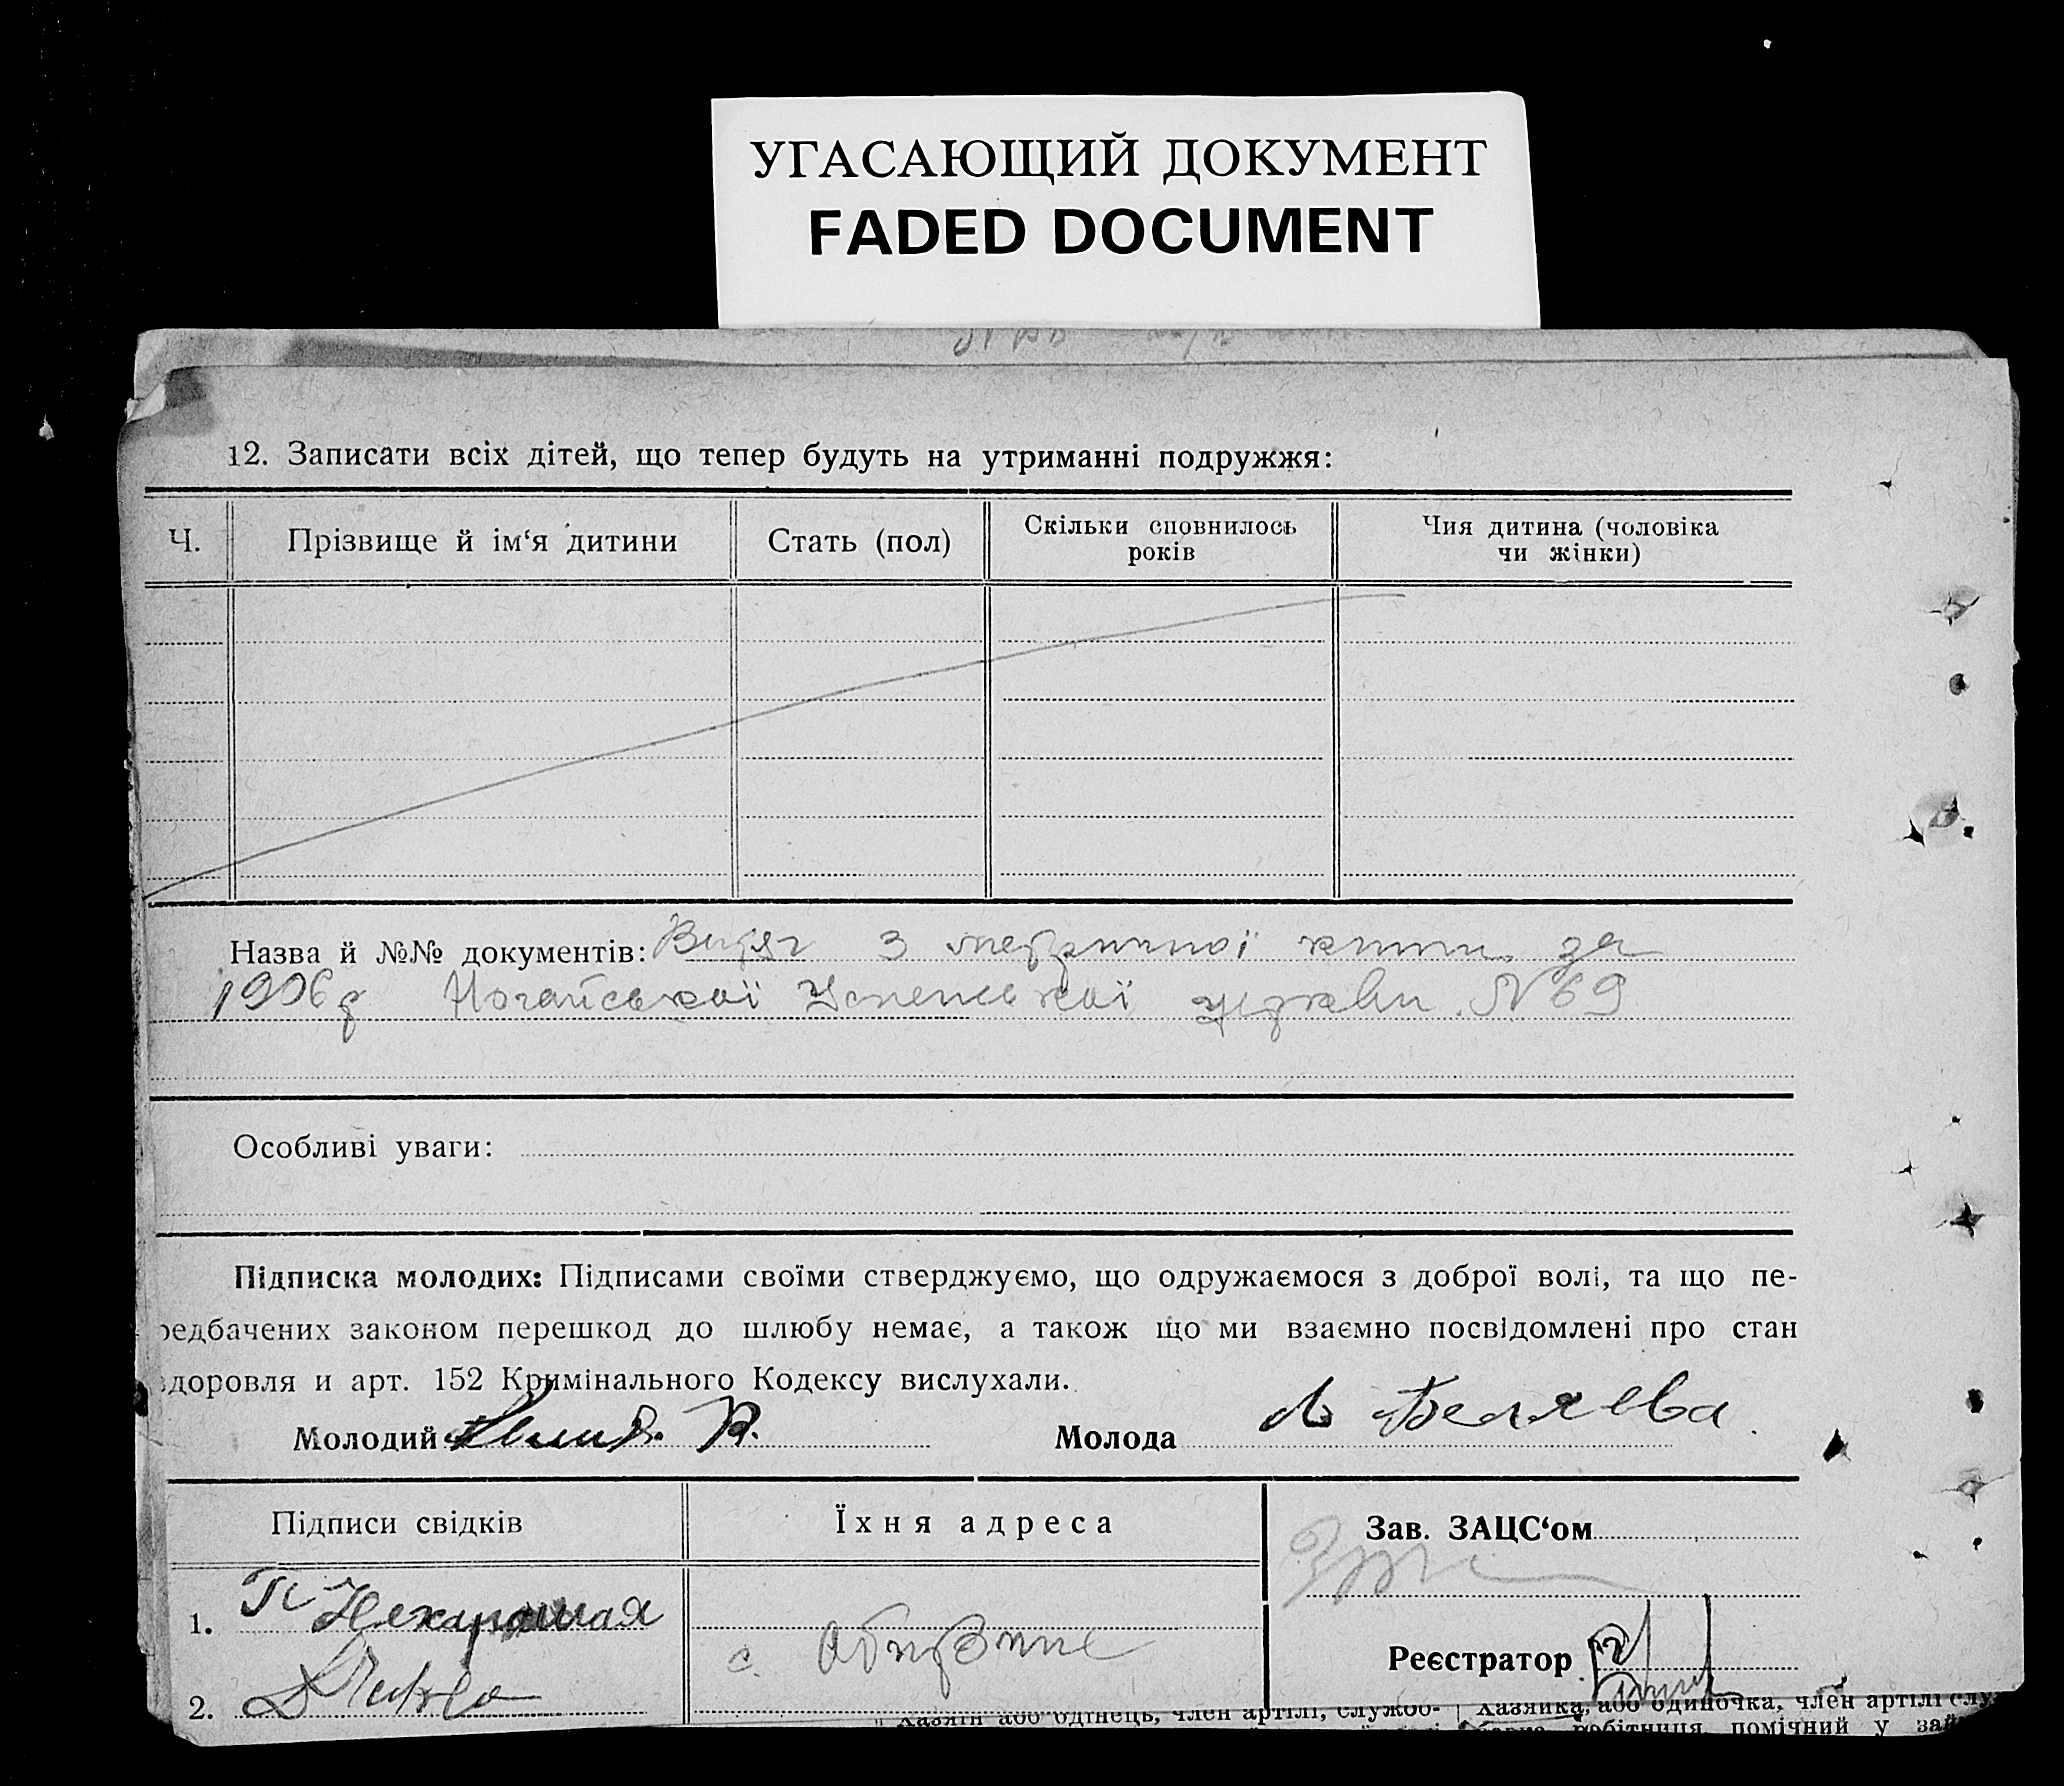 УГАСАЮЩИЙ ДОКУМЕНТ
FADED DOCUMENT
12. Записати всіх дітей, що тепер будуть на утриманні подружжя:
Ч.
Прізвище й ім‘я дитини
Стать (пол)
Скільки сповнилось
років
Чия дитина (чоловіка
чи жінки)
Назва й №№ документів: Витяг з метричної книги за
1906 р Ногайської Успенської церкви N 69
Особливі уваги:
Підписка молодих: Підписами своїми стверджуємо, що одружаємося з доброї волі, та що пе-
редбачених законом перешкод до шлюбу немає, а також що ми взаємно посвідомлені про стан
здоровля и арт. 152 Кримінального Кодексу вислухали.
Молодий
Молода Л Беляева
Підписи свідків
Їхня адреса
Зав. ЗАЦС‘ом
1. П Нехорошая
с. Обитічне
Реєстратор
2.
Хазяїн або одінець, член артілі, службо-
Хазяйка, або одиночка, член артілі служ
робітниця, помічний у зай